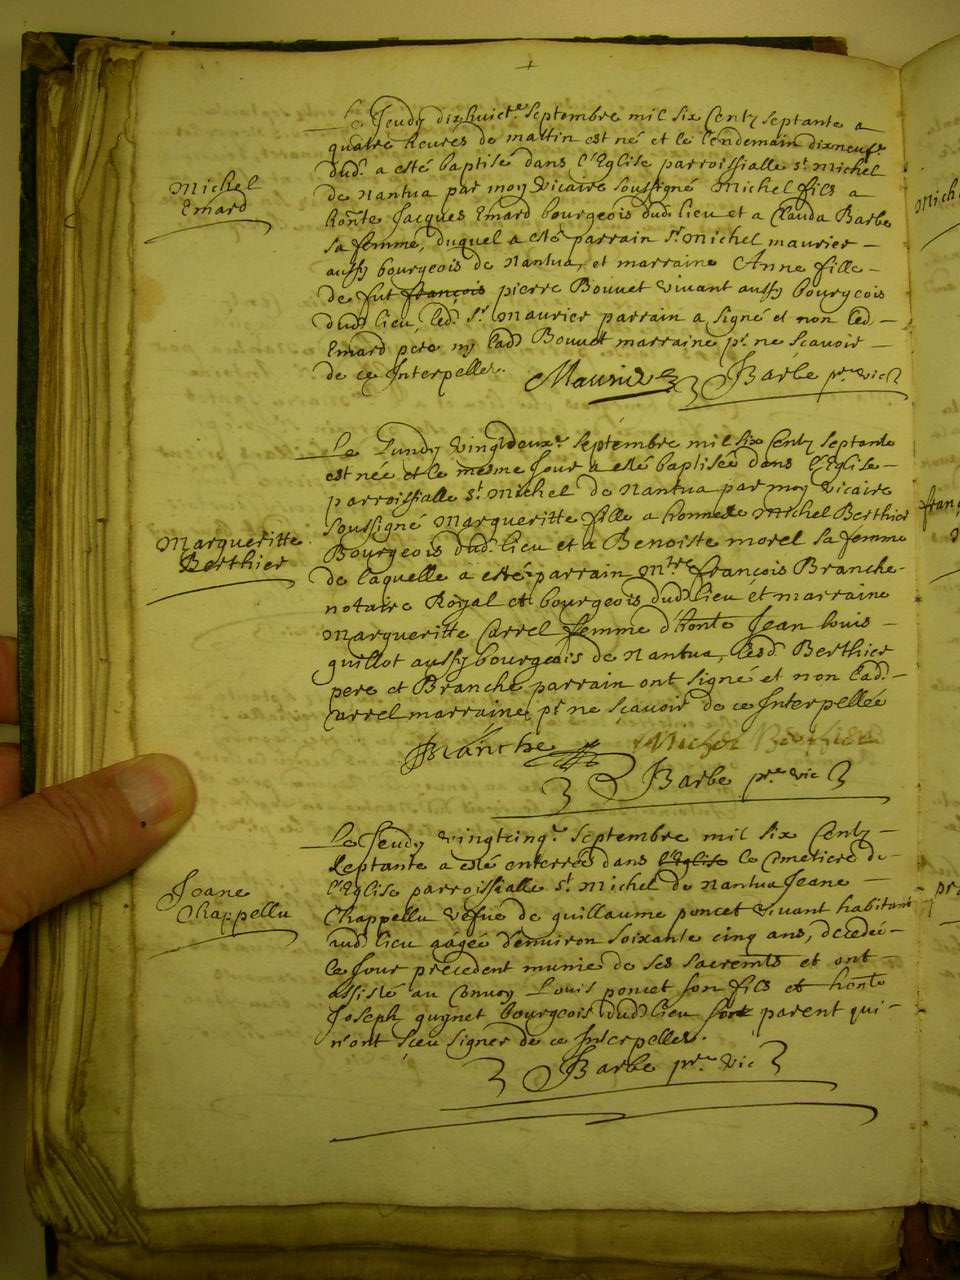 Michel
Emard
Le Jeudy dixhuict.e septembre mil six Centz septante a
quatre heures de mattin est né et le lendemain dixneufe
dud. a esté baptisé dans l'Eglise parroissialle st. Michel
de Nantua par moy vicaire soussigné Michel fils a
honte Jacques Emard bourgeois dud. lieu et a Clauda Barbe
sa femme, duquel a esté parrain sr. Michel maurier
aussy bourgeois de Nantua, et marraine Anne fille
de fut françois pierre Bouvet vivant aussy bourgeois
dud. lieu, led. sr. Maurier parrain a signé et non led.
Emard pere ny lad. Bouvet marraine pr. ne scavoir
de ce Interpellez.
Maurier Barbe ptre vic
Margueritte
Berthier
Le Lundy vingtdeuxe. septembre mil six Centz septante
est née et le mesme Jour a esté baptisée dans l'Eglise
parroissialle st. Michel de Nantua par moy vicaire
soussigné Margueritte fille a honneste Michel Berthier
Bourgeois dud. lieu et a Benoiste morel sa femme
de laquelle a esté parrain Mtre françois Branche
notaire Royal et bourgeois dud. lieu et marraine
Margueritte Carrel femme d'honte Jean louis
quillot aussy bourgeois de Nantua, lesd. Berthier
pere et Branche parrain ont signé et non lad.
Carrel marraine pr. ne sçavoir de ce Interpellée
Branche Michel Berthier
Barbe ptre vic
Jeane
Chappellu
Le Jeudy vingtcinqe. septembre mil six Centz
septante a esté enterrée dans l'Eglise le Cmetiere de
l'Eglise parroissialle st. Michel de Nantua Jeane
Chappellu vefue de guillaume poncet vivant habitant
aud. lieu agée d'environ soixante cinq ans, decedée
le Jour precedent munie de ses sacremts et ont
assisté au Convoy Louis poncet son fils et honte
Joseph guynet bourgeois dud. lieu son parent qui
n'ont sçeu signer de ce Interpellez.
Barbe ptre vic